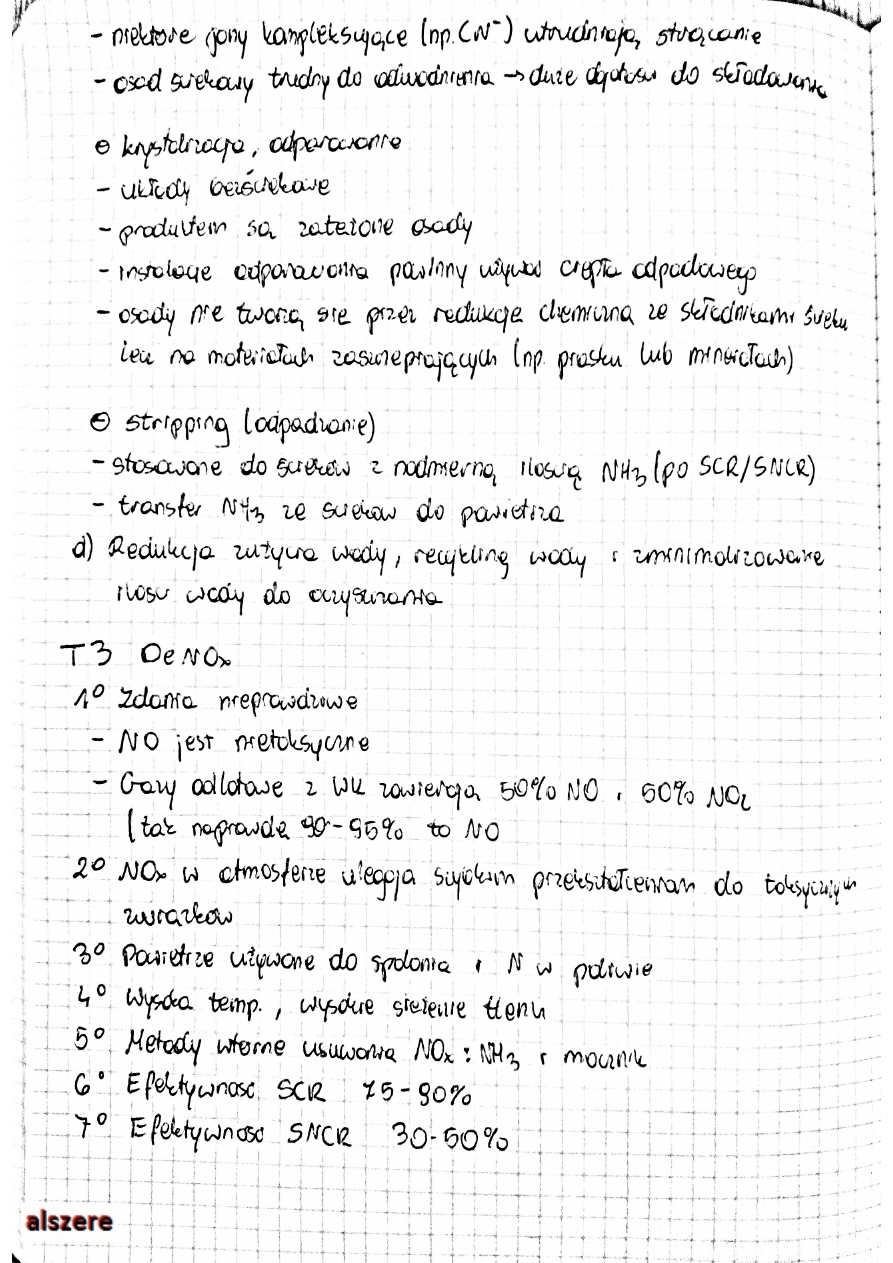 - niektóre jony kompleksujące (np. CN⁻) utrudniają strącanie
- osad ściekowy trudny do odwodnienia → duże dopłaty do składowania
⊖ krystalizacja, odparowanie
- układy bezściekowe
- produktem są zatężone osady
- instalacje odparowania powinny używać ciepła odpadowego
- osady nie tworzą się przez redukcję chemiczną ze składnikami ścieku
lecz na materiałach zaszczepiających (np. prasku lub minerałach)
⊖ stripping (odpędzanie)
- stosowane do ścieków z nadmierną ilością NH₃ (po SCR/SNCR)
- transfer NH₃ ze ścieków do powietrza
d) Redukcja zużycia wody, recykling wody i zminimalizowanie
ilości wody do oczyszczania
T3 DeNOx
1° Zdania nieprawdziwe
- NO jest nietoksyczne
- Gazy odlotowe z WK zawierają 50% NO i 50% NO₂
(tak naprawdę 90-95% to NO
2° NOx w atmosferze ulegają szybkim przekształceniom do toksycznych
związków
3° Powietrze używane do spalania i N w paliwie
4° Wysoka temp., wysokie stężenie tlenu
5° Metody wtórne usuwania NOx: NH₃ i mocznik
6° Efektywność SCR 75-90%
7° Efektywność SNCR 30-50%
alszere